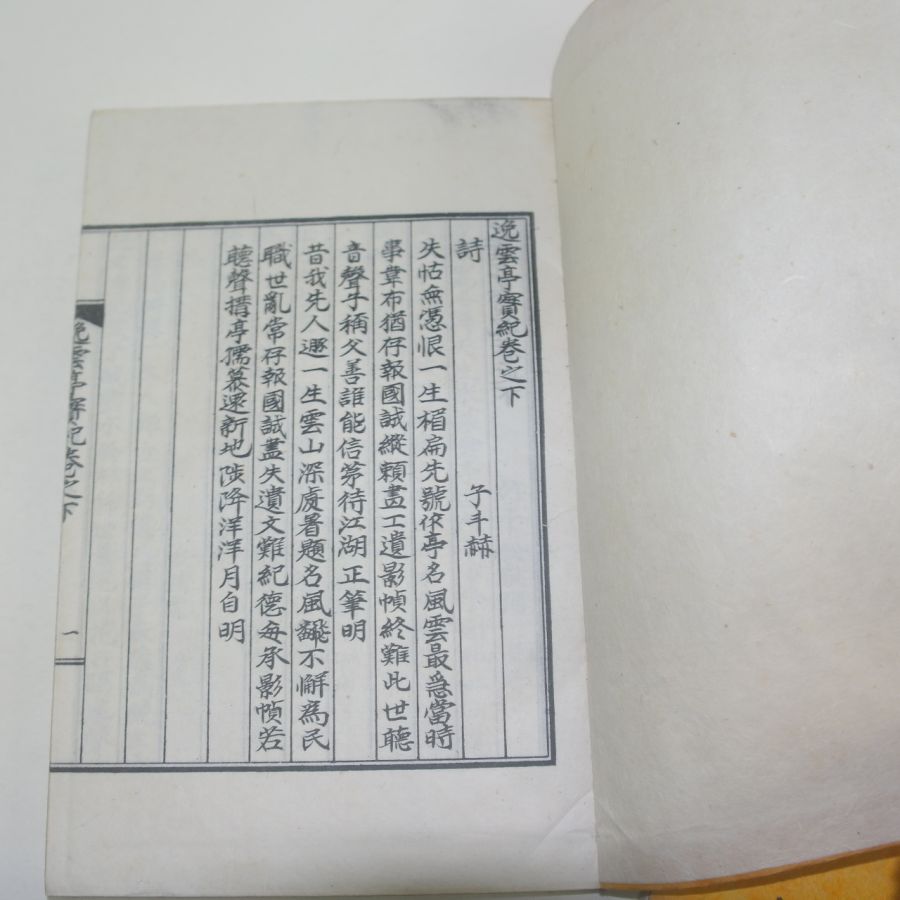 逸雲亭實紀卷之下
詩
子斗赫
失怙無憑恨一生楣扁先號佽亭名風雲最急當時
事韋布猶存報國誠縱賴畫工遺影幀終難此世聽
音聲子稱父善誰能信第待江湖正筆明
昔我先人遯一生雲山深處署題名風飜不懈爲民
職世亂常存報國誠盡失遺文難紀德每承影幀若
聽聲搆亭孺慕遝新地陟降洋洋月自明
逸雲亭實紀卷之下
一